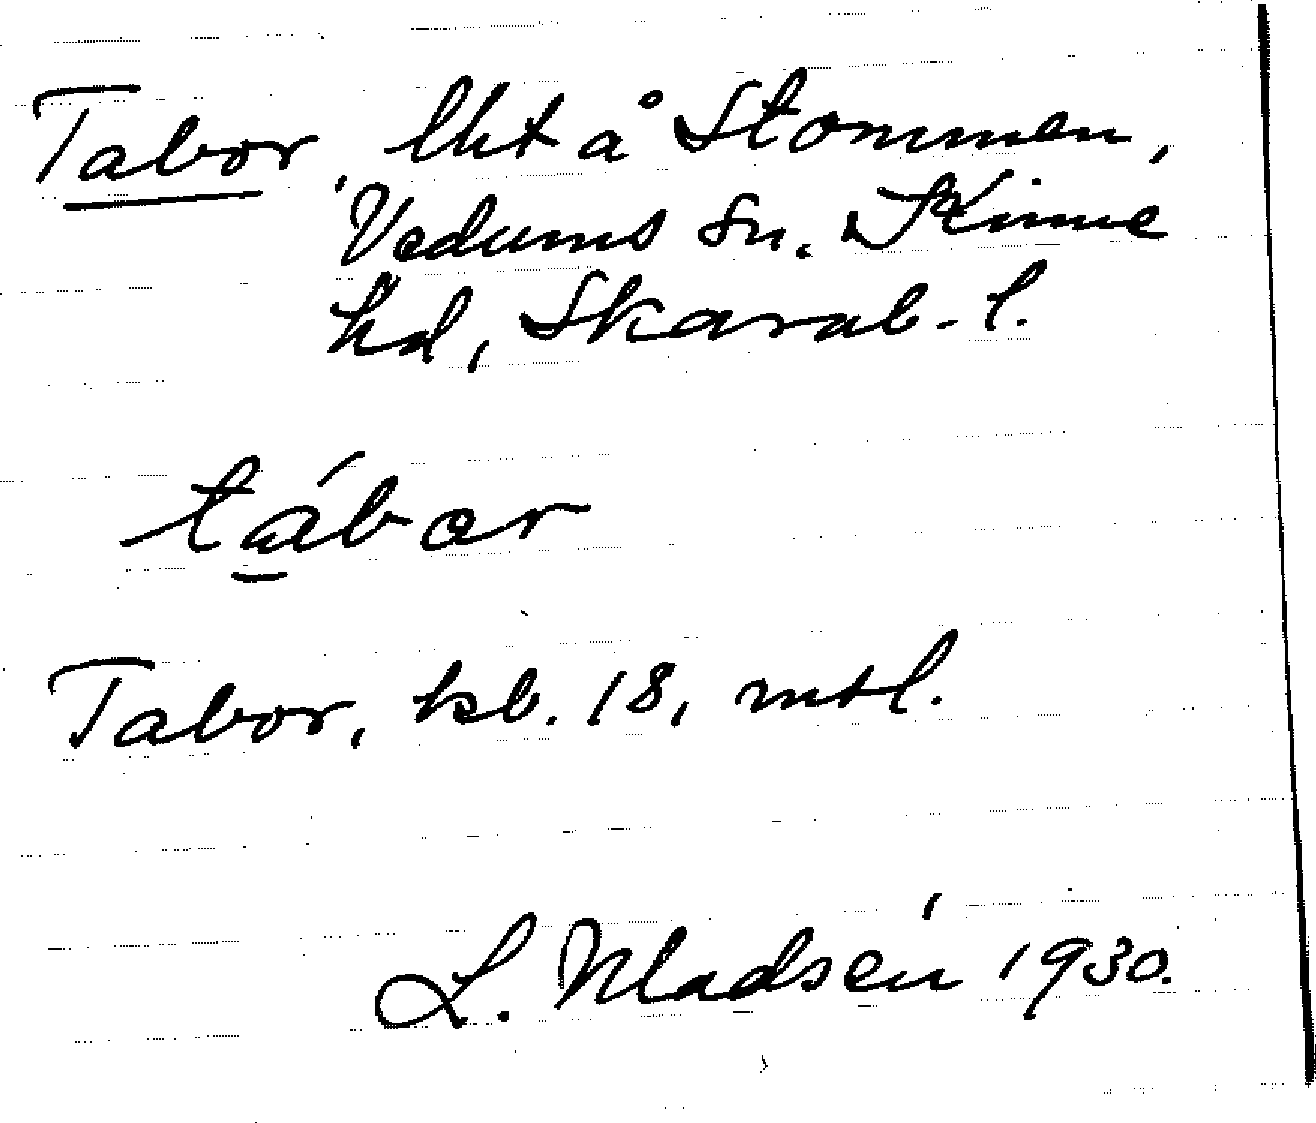 Tabor, lht å Stommen,
Vedums sn. Kinne
hd, Skarab. l.
tábor
Tabor, kb. 18, mtl.
L. Madsén 1930.